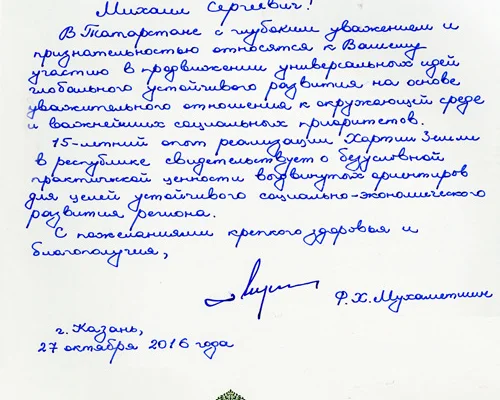 Михаил Сергеевич!
В Татарстане с глубоким уважением и
признательностью относятся к Вашему
участию в продвижении универсальных идей
глобального устойчивого развития на основе
уважительного отношения к окружающей среде
и важнейших социальных приоритетов.
15-летний опыт реализации Хартии Земли
в республике свидетельствует о безусловной
практической ценности выдвинутых ориентиров
для целей устойчивого социально-экономического
развития региона.
С пожеланиями крепкого здоровья и
благополучия,
Ф.Х.Мухаметшин
г. Казань,
27 октября 2016 года